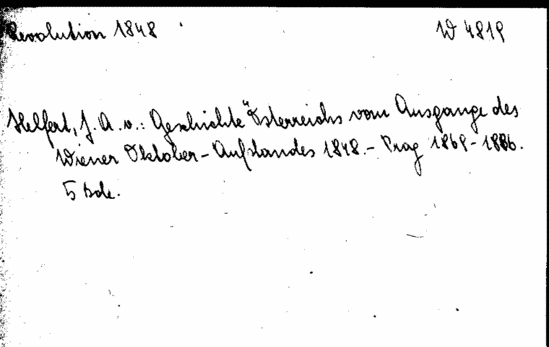 Revolution 1848
W 4819
Helfert, J. A. v.: Geschichte Österreichs vom Ausgange des
Wiener Oktober-Aufstandes 1848.- Prag 1869-1886.
5 Bde.